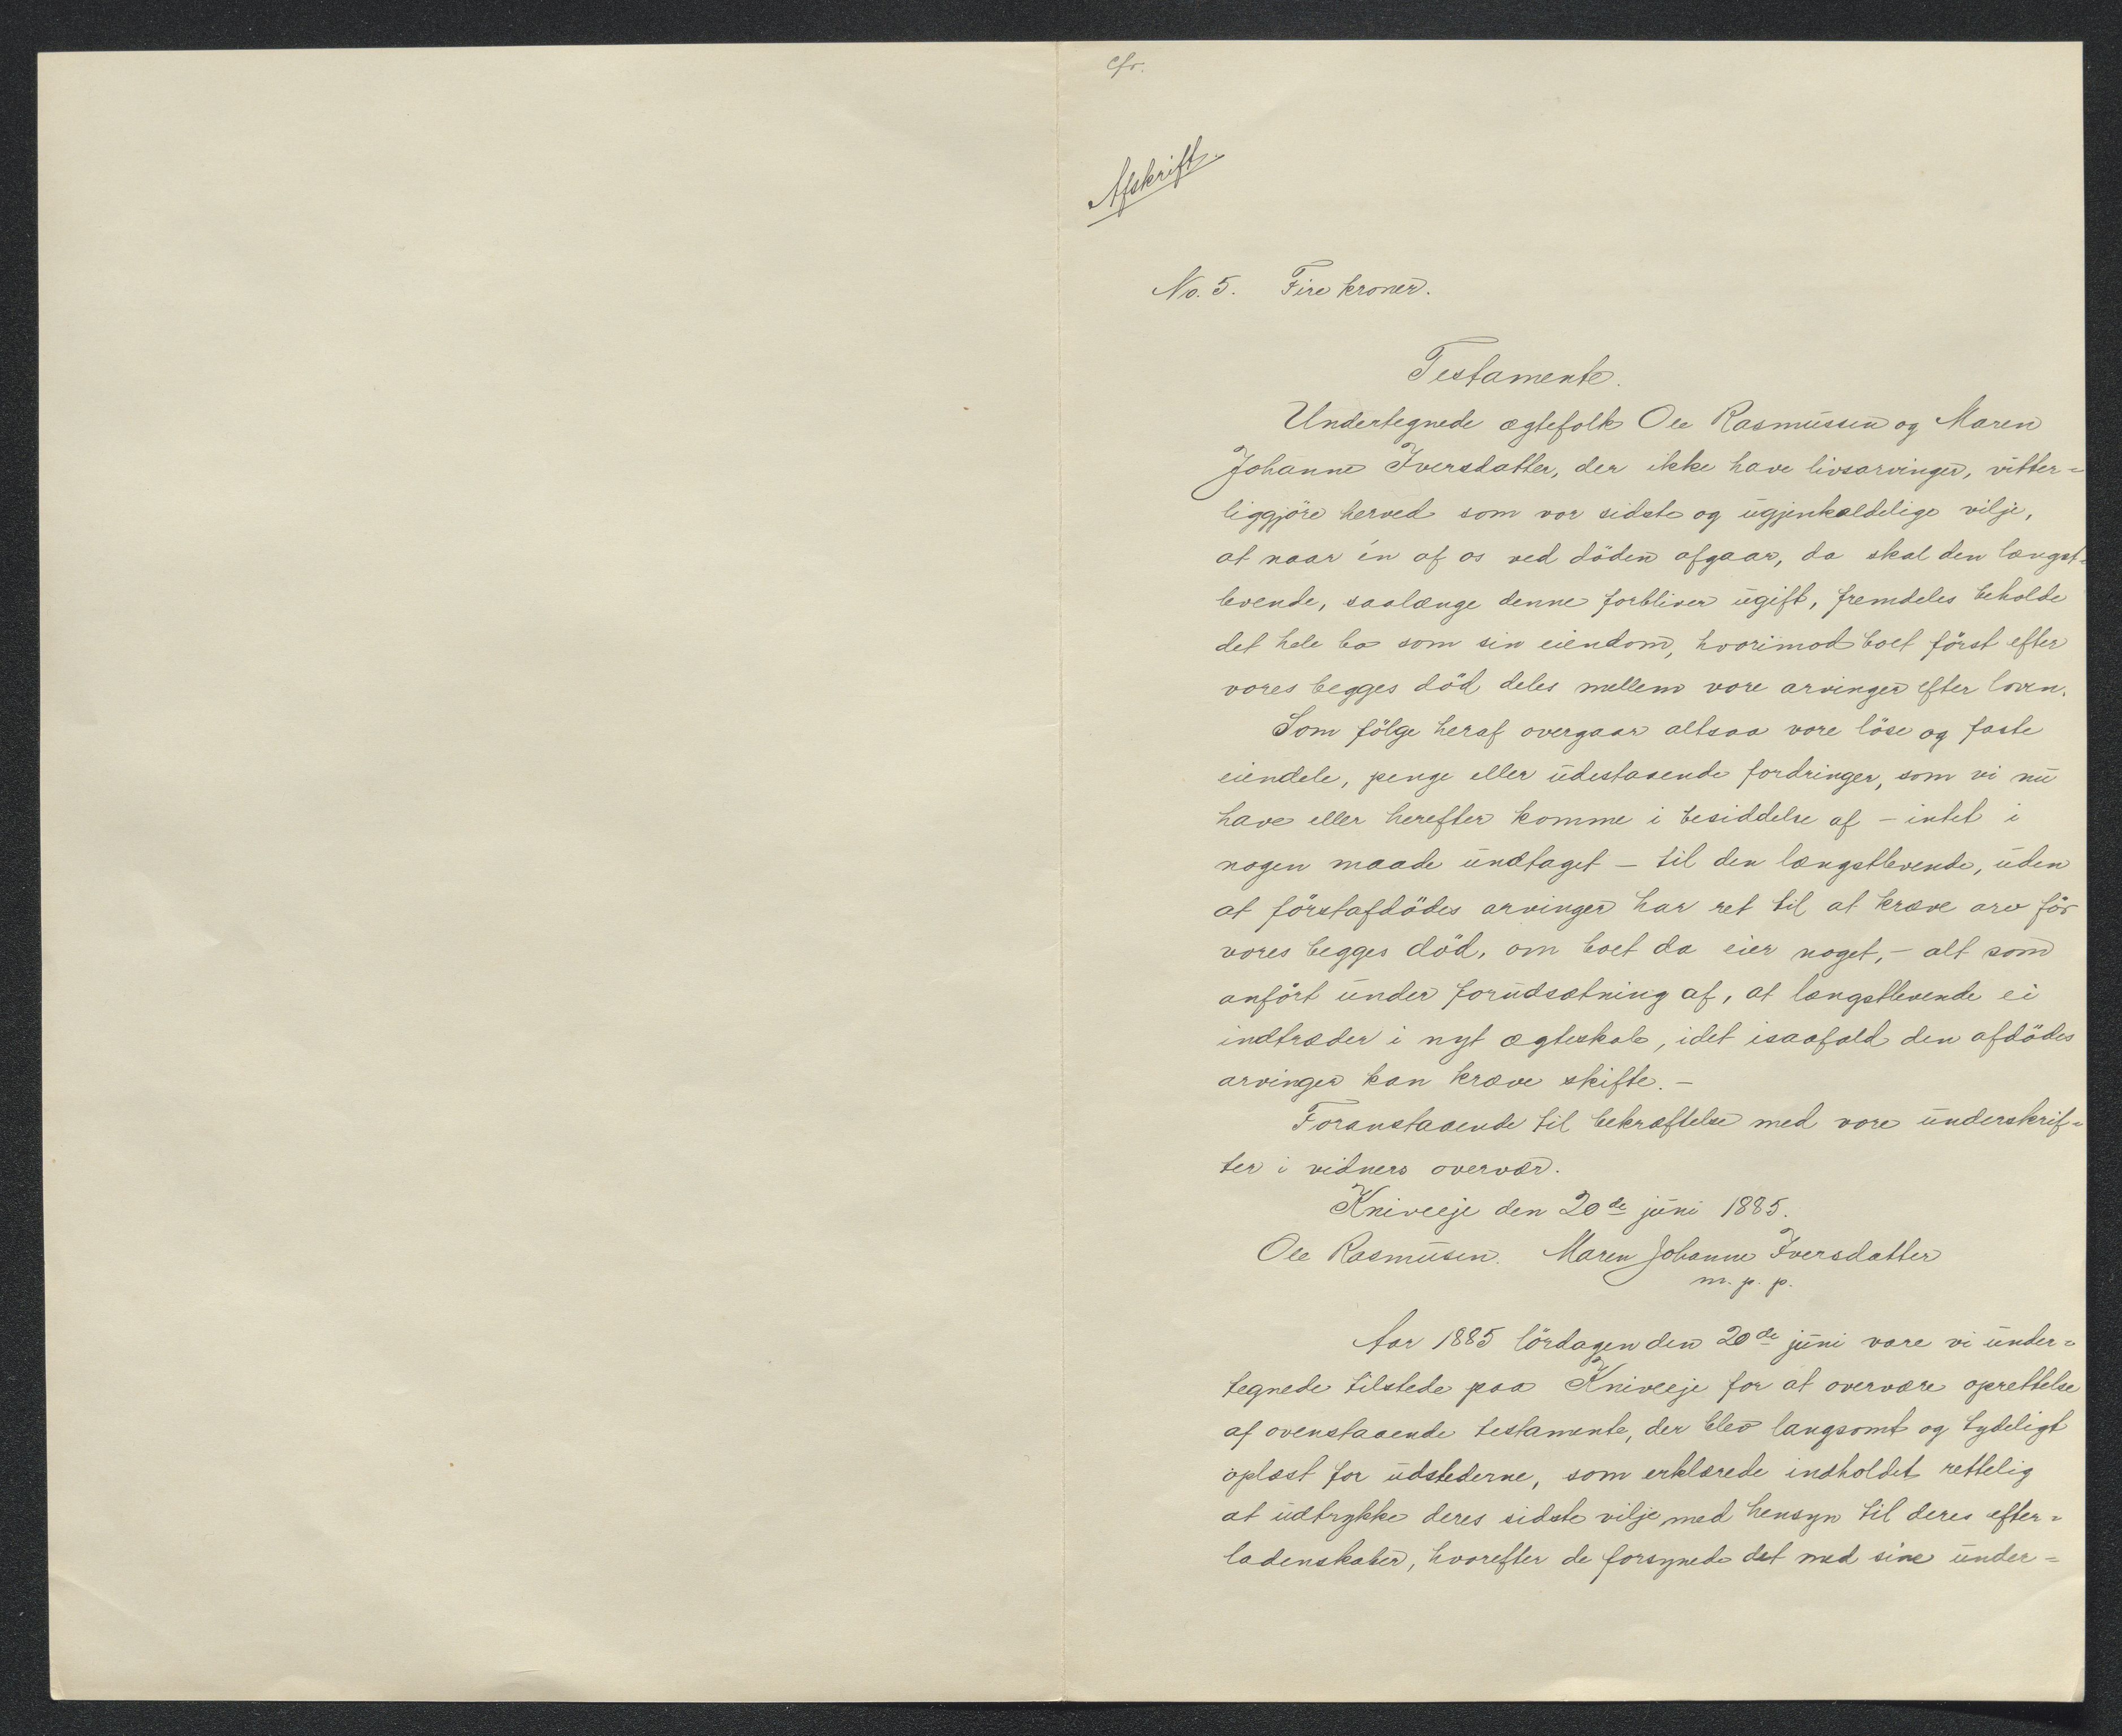 Cfr.
Afskrift.
No. 5. Fire kroner.
Testamente.
Undertegnede ægtefolk Ole Rasmussen og Maren
Johanne Iversdatter, der ikke have livsarvinger, vitter=
liggjöre herved som vor sidste og ugjenkaldelige vilje,
at naar én af os ved döden afgaar, da skal den længst=
levende, saalænge denne forbliver ugift, fremdeles beholde
det hele bo som sin eiendom, hvorimod boet först efter
vores begges död deles mellem vore arvinger efter loven.
Som fölge heraf overgaar altsaa vore löse og faste
eiendele, penge eller udestaaende fordringer, som vi nu
have eller herefter komme i besiddelse af – intet i
nogen maade undtaget – til den længstlevende, uden
at förstafdödes arvinger har ret til at kræve arv för
vores begges död, om boet da eier noget, – alt som
anfört under forudsætning af, at længstlevende ei
indtræder i nyt ægteskab, idet isaafald den afdödes
arvinger kan kræve skifte. –
Foranstaaende til bekræftelse med vore underskrif=
ter i vidners overvær.
Kniveeje den 20de juni 1885.
Ole Rasmusen. Maren Johanne Iversdatter
m. p. p.
Aar 1885 lördagen den 20de juni vare vi under=
tegnede tilstede paa Kniveeje for at overvære oprettelse
af ovenstaaende testamente, der blev langsomt og tydeligt
oplæst for udstederne, som erklærede indholdet rettelig
at udtrykke deres sidste vilje med hensyn til deres efter=
ladenskaber, hvorefter de forsynede det med sine under=